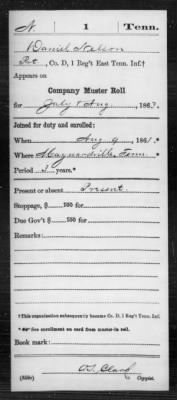 N. 1 Tenn.
Daniel Nelson
Pvt, Co. D, 1 Reg't East Tenn. Inf.†
Appears on
Company Muster Roll
for July & Aug, 186
Joined for duty and enrolled:
When Aug 9, 1861.*
Where Maynardville, Tenn.
Period 3 years.*
Present or absent Present
Stoppage, $ 100 for
Due Gov't $ 100 for
Remarks:
†This organization subsequently became Co. D, 1 Reg't Tenn. Inf.
* See enrollment on card from muster-in roll.
Book mark:
Clark
(858c) Copyist.